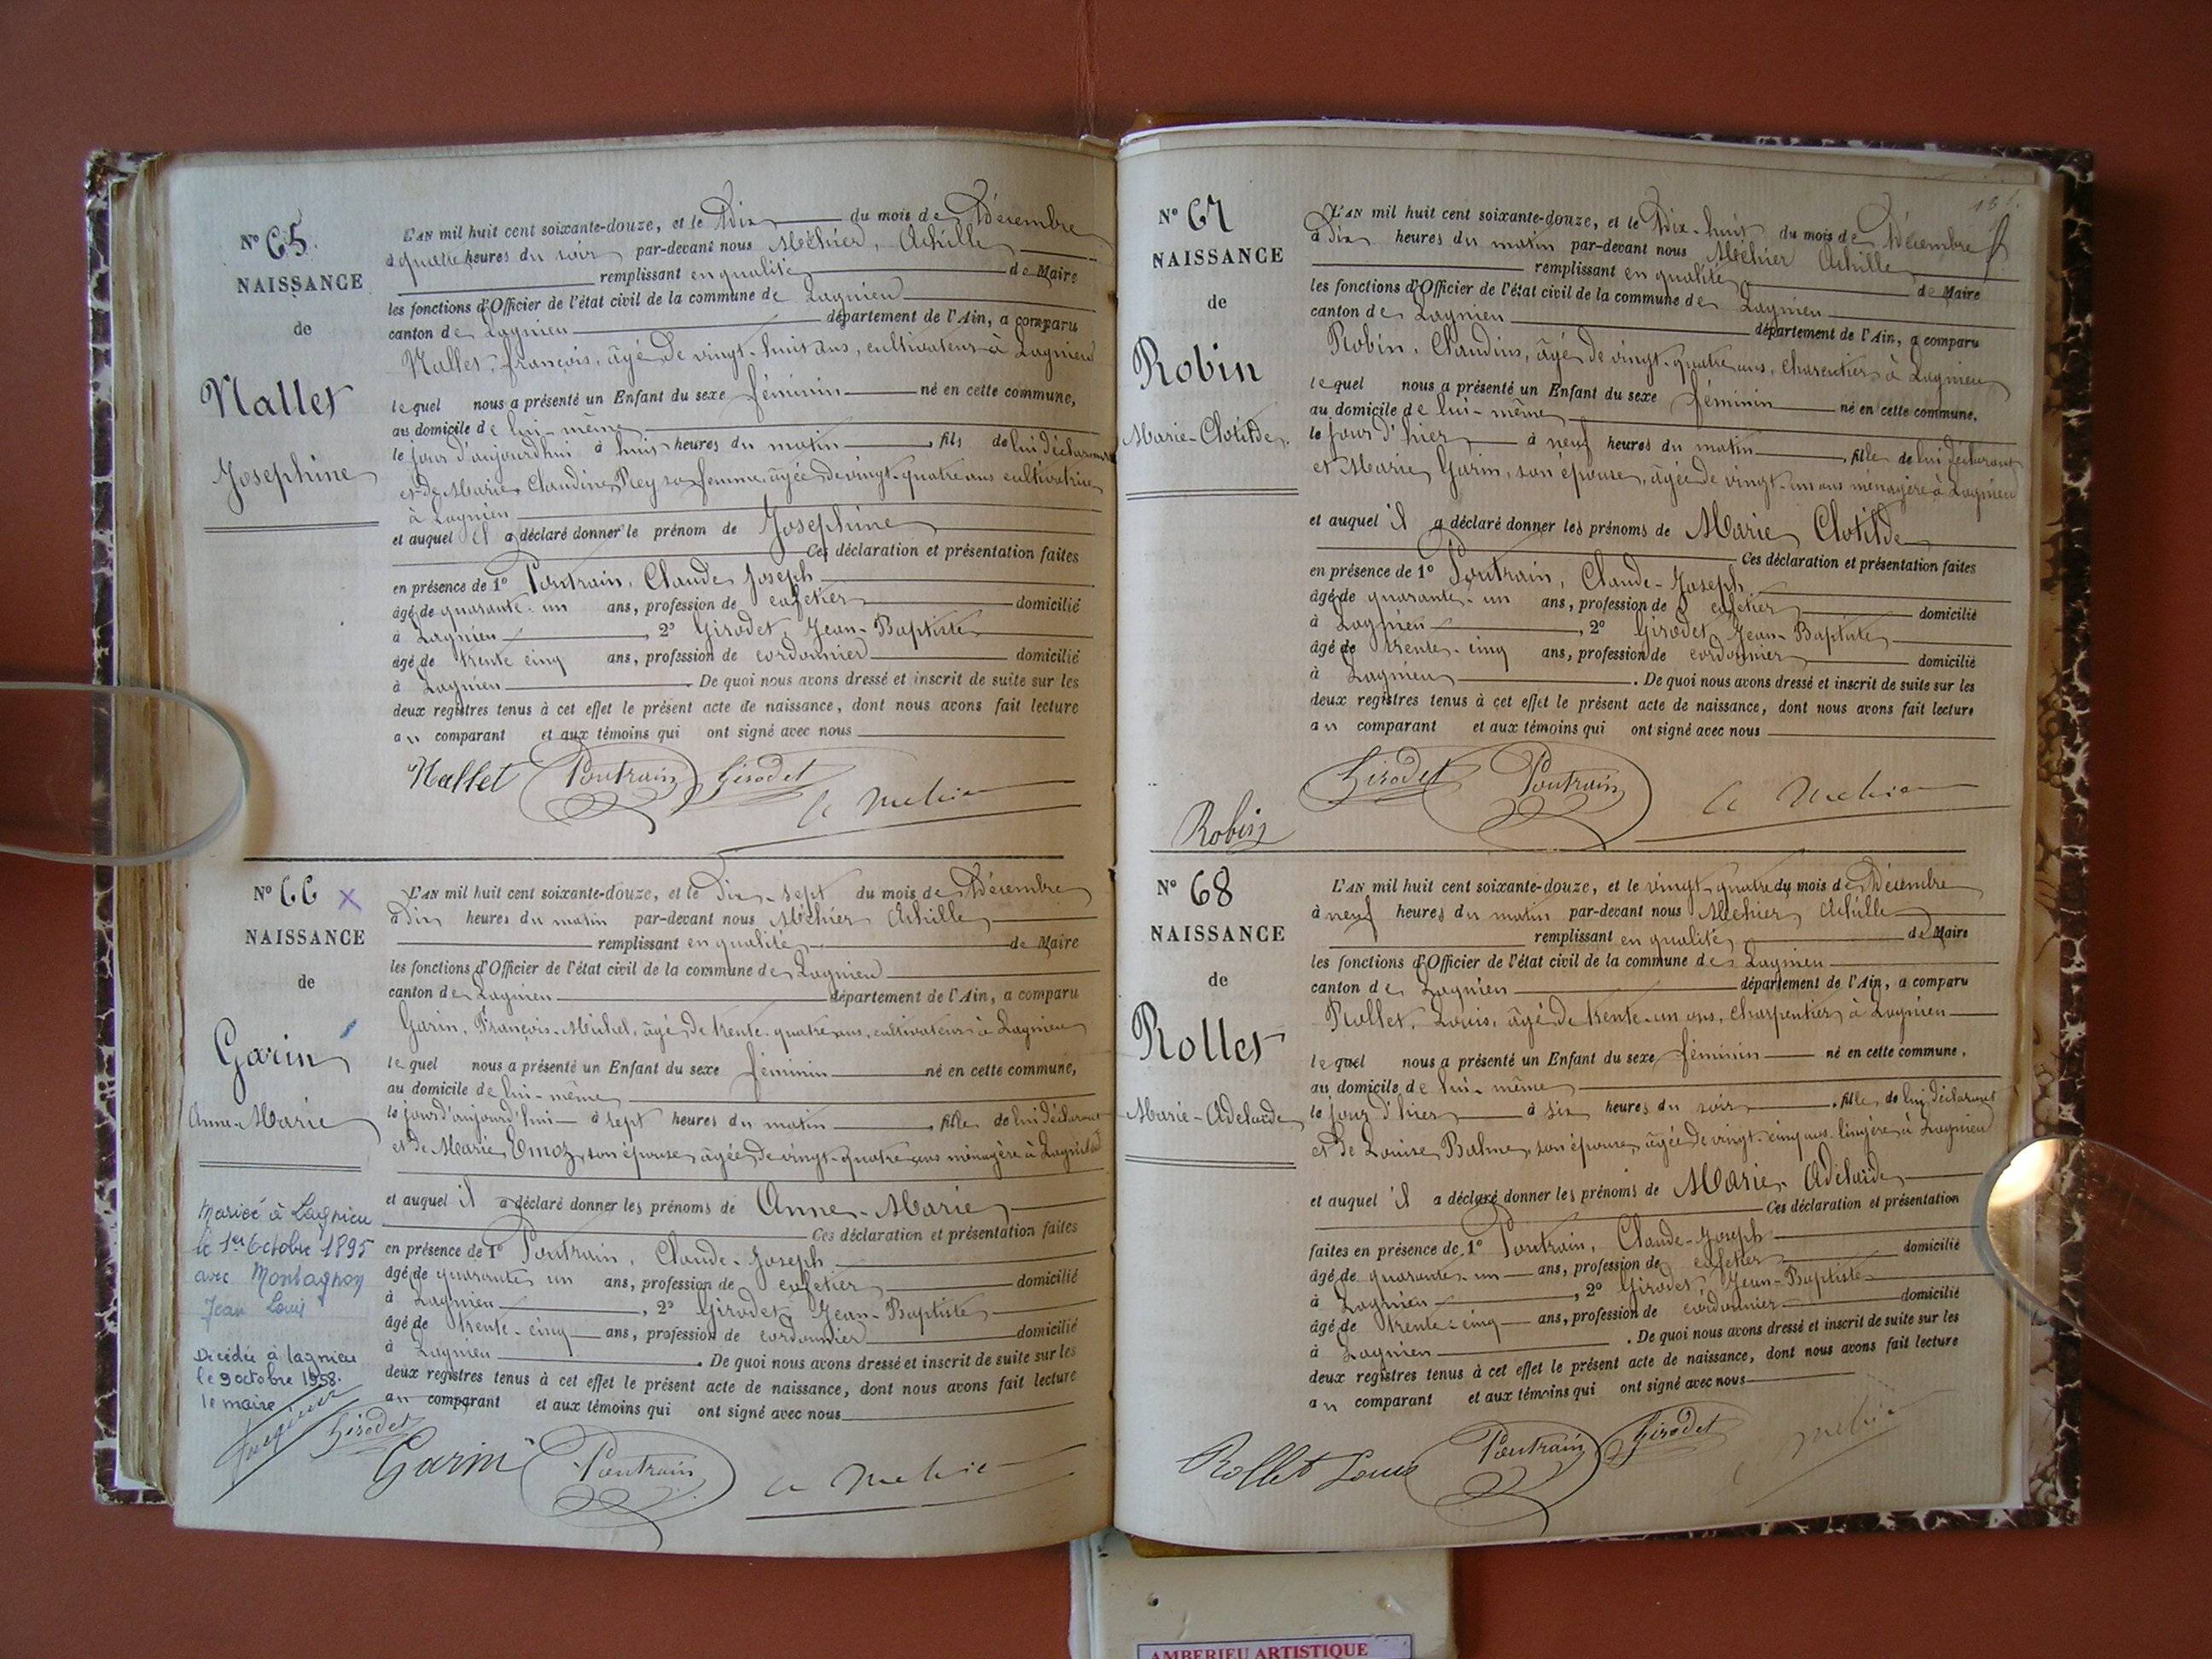 N° 65.
NAISSANCE
de
Nallet
Josephine
L'AN mil huit cent soixante-douze, et le Dix du mois de Décembre
à quatre heures du soir par-devant nous Méhier, Achille
remplissant en qualité de Maire
les fonctions d'Officier de l'état civil de la commune de Lagnieu
canton de Lagnieu département de l'Ain, a comparu
Nallet, françois, âgé de vingt-huit ans, cultivateur à Lagnieu
lequel nous a présenté un Enfant du sexe féminin né en cette commune,
au domicile de lui-même
le jour d'aujourd'hui à huit heures du matin, fils de lui déclarant
et de Marie Claudine Rey sa femme, âgée de vingt-quatre ans cultivatrice
à Lagnieu
et auquel il a déclaré donner le prénom de Josephine
Ces déclaration et présentation faites
en présence de 1° Poutrain, Claude Joseph
âgé de quarante-un ans, profession de cafetier domicilié
à Lagnieu, 2° Girodet, Jean-Baptiste
âgé de trente cinq ans, profession de cordonnier domicilié
à Lagnieu. De quoi nous avons dressé et inscrit de suite sur les
deux registres tenus à cet effet le présent acte de naissance, dont nous avons fait lecture
au comparant et aux témoins qui ont signé avec nous
Nallet Poutrain Girodet A Mehier
N° 66 X
NAISSANCE
de
Garin
Anne-Marie
L'AN mil huit cent soixante-douze, et le Dix-sept du mois de Décembre
à Dix heures du matin par-devant nous Méhier Achille
remplissant en qualité de Maire
les fonctions d'Officier de l'état civil de la commune de Lagnieu
canton de Lagnieu département de l'Ain, a comparu
Garin, François-Michel, âgé de trente-quatre ans, cultivateur à Lagnieu
lequel nous a présenté un Enfant du sexe féminin né en cette commune,
au domicile de lui-même
le jour d'aujourd'hui à sept heures du matin, fille de lui déclarant
et de Marie Emoz, son épouse, âgée de vingt-quatre ans ménagère à Lagnieu
et auquel il a déclaré donner les prénoms de Anne-Marie
Ces déclaration et présentation faites
en présence de 1° Poutrain, Claude-Joseph
âgé de quarante un ans, profession de cafetier domicilié
à Lagnieu, 2° Girodet, Jean-Baptiste
âgé de trente-cinq ans, profession de cordonnier domicilié
à Lagnieu. De quoi nous avons dressé et inscrit de suite sur les
deux registres tenus à cet effet le présent acte de naissance, dont nous avons fait lecture
au comparant et aux témoins qui ont signé avec nous
Mariée à Lagnieu
le 1er Octobre 1895
avec Montagnon
Jean Louis
Décédée à lagnieu
le 9 octobre 1958.
le maire
Girodet Garin Poutrain A Mehier
N° 67
NAISSANCE
de
Robin
Marie-Clotilde.
L'AN mil huit cent soixante-douze, et le Dix-huit du mois de Décembre
à Dix heures du matin par-devant nous Méhier Achille
remplissant en qualité de Maire
les fonctions d'Officier de l'état civil de la commune de Lagnieu
canton de Lagnieu département de l'Ain, a comparu
Robin, Claudius, âgé de vingt-quatre ans, charpentier à Lagnieu
lequel nous a présenté un Enfant du sexe féminin né en cette commune,
au domicile de lui-même
le jour d'hier à neuf heures du matin, fille de lui déclarant
et Marie Garin, son épouse, âgée de vingt-un ans ménagère à Lagnieu
et auquel il a déclaré donner les prénoms de Marie Clotilde
Ces déclaration et présentation faites
en présence de 1° Poutrain, Claude-Joseph
âgé de quarante-un ans, profession de cafetier domicilié
à Lagnieu, 2° Girodet, Jean-Baptiste
âgé de trente-cinq ans, profession de cordonnier domicilié
à Lagnieu. De quoi nous avons dressé et inscrit de suite sur les
deux registres tenus à cet effet le présent acte de naissance, dont nous avons fait lecture
au comparant et aux témoins qui ont signé avec nous
Robin Girodet Poutrain A Mehier
N° 68
NAISSANCE
de
Rollet
Marie-Adelaïde
L'AN mil huit cent soixante-douze, et le vingt-quatre du mois de Décembre
à neuf heures du matin par-devant nous Mehier, Achille
remplissant en qualité de Maire
les fonctions d'Officier de l'état civil de la commune de Lagnieu
canton de Lagnieu département de l'Ain, a comparu
Rollet, Louis, âgé de trente-un ans, charpentier, à Lagnieu
lequel nous a présenté un Enfant du sexe féminin né en cette commune,
au domicile de lui-même
le jour d'hier à six heures du soir, fille de lui déclarant
et de Louise Balme, son épouse, âgée de vingt-cinq ans lingère à Lagnieu
et auquel il a déclaré donner les prénoms de Marie Adelaïde
Ces déclaration et présentation
faites en présence de 1° Poutrain, Claude-Joseph
âgé de quarante-un ans, profession de cafetier domicilié
à Lagnieu, 2° Girodet, Jean-Baptiste
âgé de trente-cinq ans, profession de cordonnier domicilié
à Lagnieu. De quoi nous avons dressé et inscrit de suite sur les
deux registres tenus à cet effet le présent acte de naissance, dont nous avons fait lecture
au comparant et aux témoins qui ont signé avec nous
Rollet Louis Poutrain Girodet Mehier
AMBERIEU ARTISTIQUE